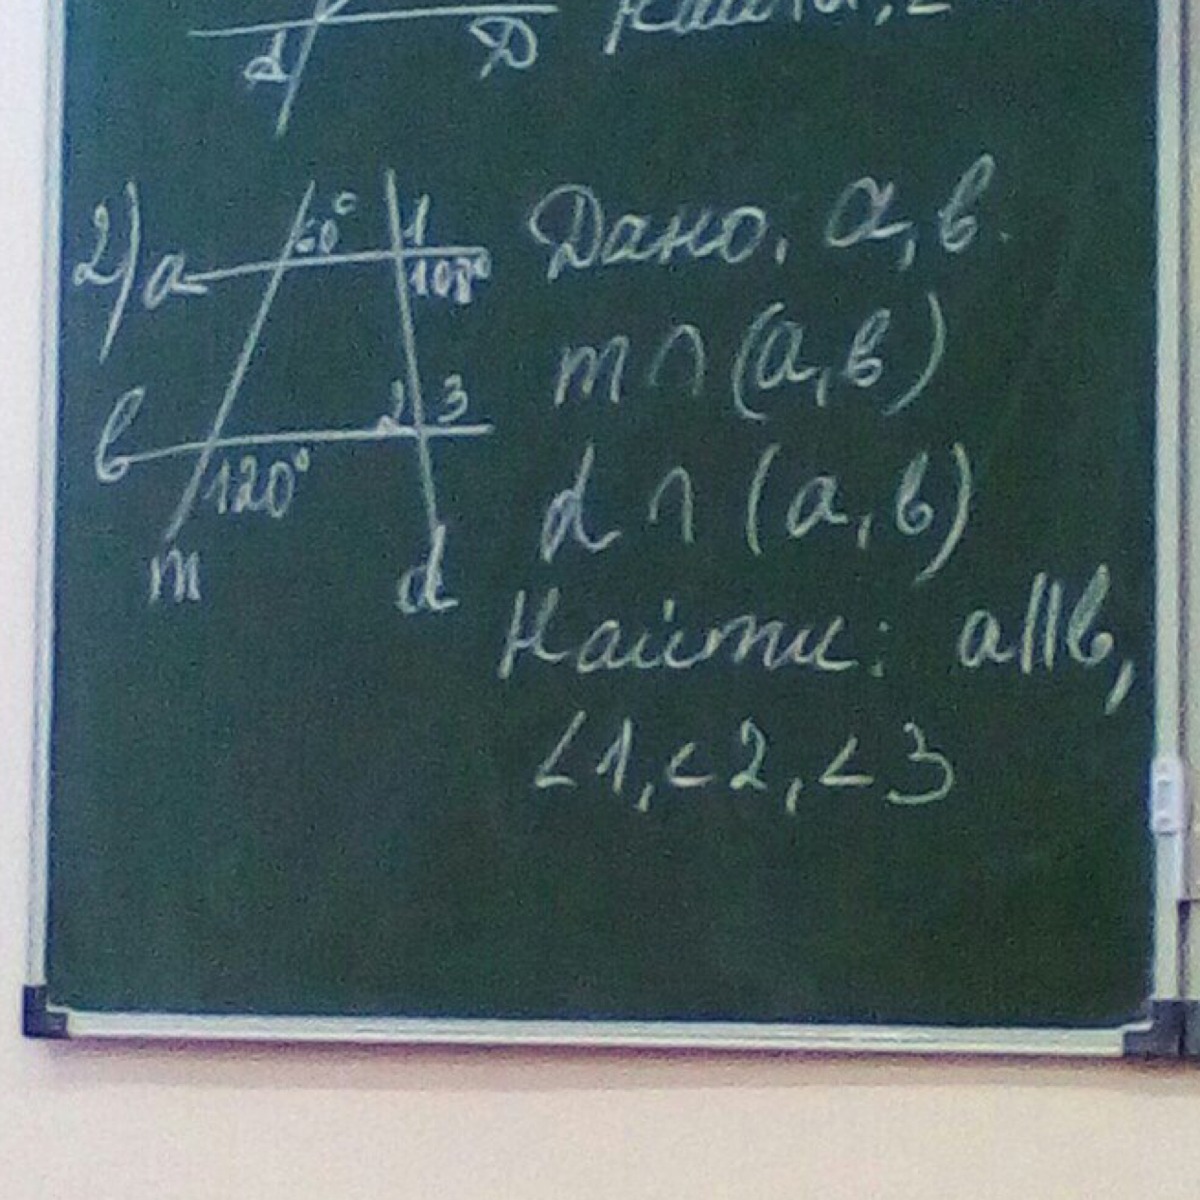 d D
2) a 60° 1 108°
b 2 3
120°
m d
Дано: a, b.
m ∩ (a, b)
d ∩ (a, b)
Найти: a||b,
<1, <2, <3